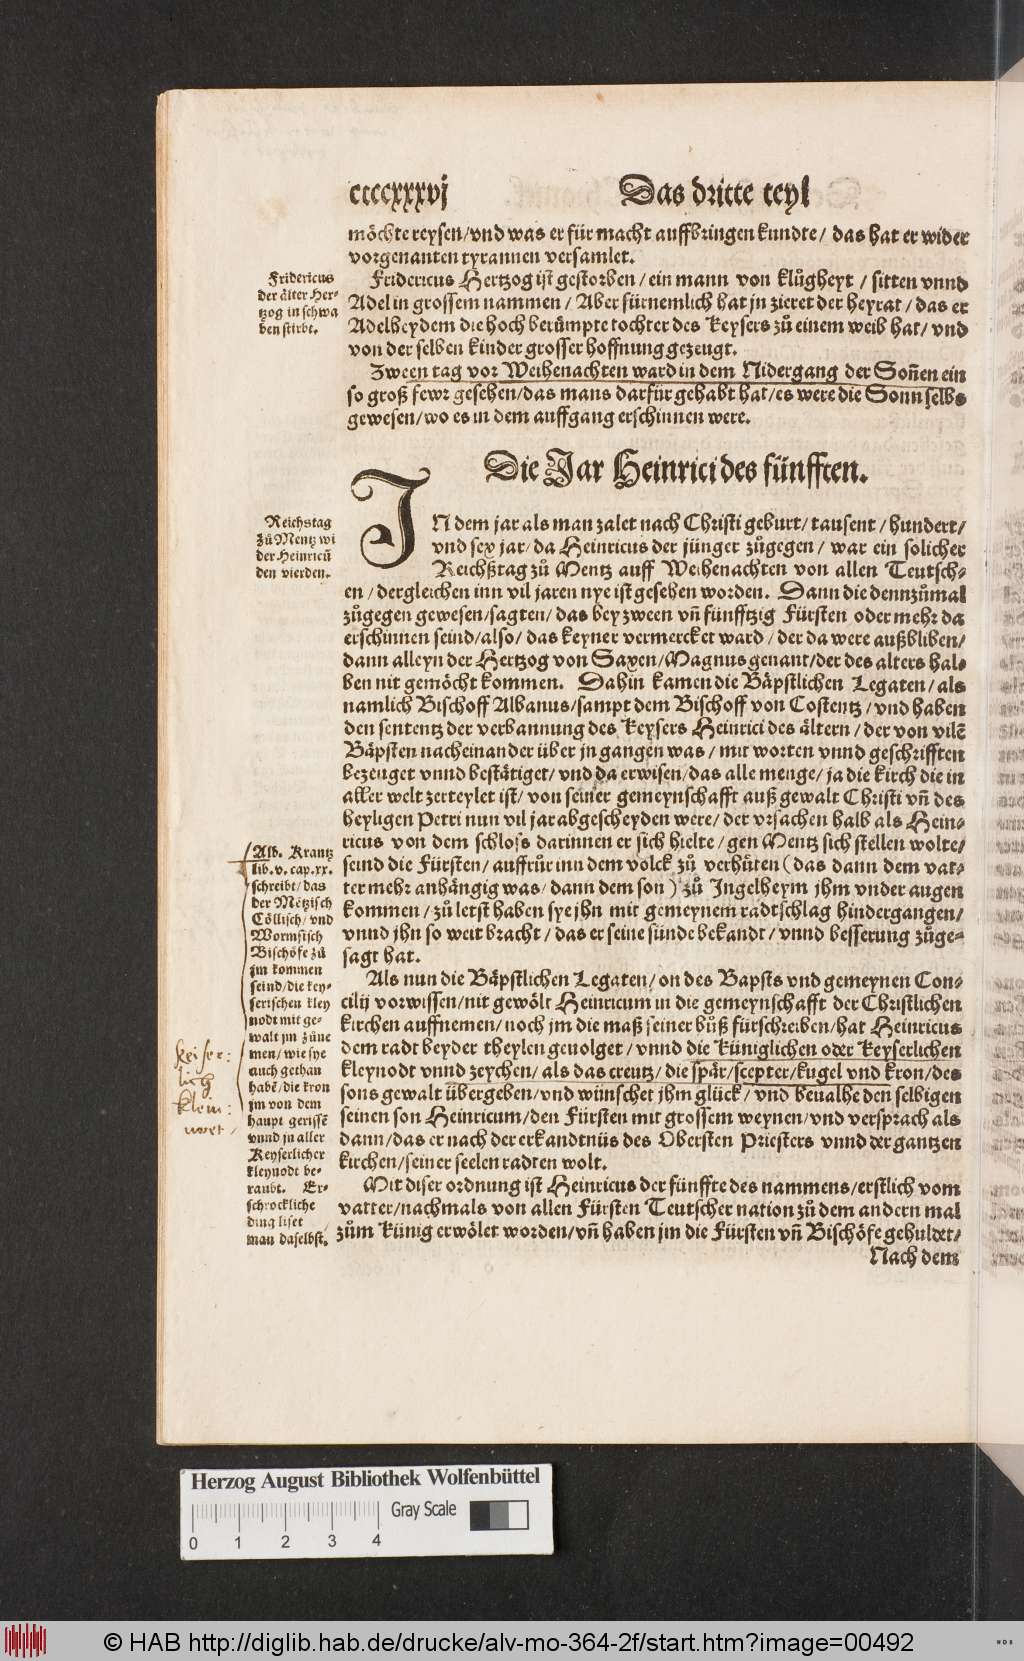 ccccxxxvj Das dritte teyl
möchte reysen/vnd was er für macht auffbringen kundte/ das hat er wider
vorgenanten tyrannen versamlet.
Fridericus
der älter Her-
tzog in schwa
ben stirbt.
Fridericus Hertzog ist gestorben/ein mann von klůgheyt/ sitten vnnd
Adel in grossem nammen/ Aber fürnemlich hat jn zieret der heyrat/das er
Adelheydem die hoch berümpte tochter des Keysers zů einem weib hat/vnd
von der selben kinder grosser hoffnung gezeugt.
Zween tag vor Weihenachten ward in dem Nidergang der Soñen ein
so groß fewr gesehen/das mans darfür gehabt hat/es were die Sonn selbs
gewesen/wo es in dem auffgang erschinnen were.
Die Jar Heinrici des fünfften.
Reichstag
zů Mentz wi
der Heinricũ
den vierden.
IN dem jar als man zalet nach Christi geburt/tausent/hundert/
vnd sex jar/da Heinricus der jünger zůgegen/ war ein solicher
Reichßtag zů Mentz auff Weihenachten von allen Teutsch-
en/dergleichen inn vil jaren nye ist gesehen worden. Dann die dennzůmal
zůgegen gewesen/sagten/das bey zween vñ fünfftzig Fürsten oder mehr da
erschinnen seind/also/das keyner vermercket ward/der da were außbliben/
dann alleyn der Hertzog von Saxen/Magnus genant/der des alters hal-
ben nit gemöcht kommen. Dahin kamen die Bäpstlichen Legaten/als
namlich Bischoff Albanus/sampt dem Bischoff von Costentz/vnd haben
den sententz der verbannung des Keysers Heinrici des ältern/der von vilẽ
Bäpsten nacheinander über jn gangen was/mit worten vnnd geschrifften
bezeuget vnnd bestätiget/vnd da erwisen/das alle menge/ja die kirch die in
aller welt zerteylet ist/von seiner gemeynschafft auß gewalt Christi vñ des
heyligen Petri nun vil jar abgescheyden were/der vrsachen halb als Hein-
ricus von dem schloss darinnen er sich hielte/gen Mentz sich stellen wolte/
seind die Fürsten/auffrůr inn dem volck zů verhüten (das dann dem vat-
ter mehr anhängig was/dann dem son) zů Ingelheym jhm vnder augen
kommen/zů letst haben sye jhn mit gemeynem radtschlag hindergangen/
vnnd jhn so weit bracht/das er seine sünde bekandt/vnnd besserung zůge-
sagt hat.
Alb. Krantz
lib.v.cap.xx.
schreibt/das
der Mẽtzisch
Cöllisch/vnd
Wormsisch
Bischöfe zů
jm kommen
seind/die key-
serischen kley
nodt mit ge-
walt jm züne
men/wie sye
auch gethan
habẽ/die kron
jm von dem
haupt gerissẽ
vnnd jn aller
Keyserlicher
kleynodt be-
raubt. Er-
schrockliche
ding liset
man daselbst.
keiser:
lich
klein:
Als nun die Bäpstlichen Legaten/on des Bapsts vnd gemeynen Con-
cilij vorwissen/nit gewölt Heinricum in die gemeynschafft der Christlichen
kirchen auffnemen/noch jm die maß seiner bůß fürschreiben/hat Heinricus
dem radt beyder theylen geuolget/vnnd die Küniglichen oder Keyserlichen
kleynodt vnnd zeychen/als das creutz/die spär/scepter/kugel vnd kron/des
sons gewalt übergeben/vnd wünschet jhm glück/vnd beualhe den selbigen
seinen son Heinricum/den Fürsten mit grossem weynen/vnd versprach als
dann/das er nach der erkandtnüs des Obersten Priesters vnnd der gantzen
kirchen/seiner seelen radten wolt.
Mit diser ordnung ist Heinricus der fünffte des nammens/erstlich vom
vatter/nachmals von allen Fürsten Teutscher nation zů dem andern mal
zům Künig erwölet worden/vñ haben jm die Fürsten vñ Bischöfe gehuldet/
Nach dem
Herzog August Bibliothek Wolfenbüttel
Gray Scale
0 1 2 3 4
© HAB http://diglib.hab.de/drucke/alv-mo-364-2f/start.htm?image=00492